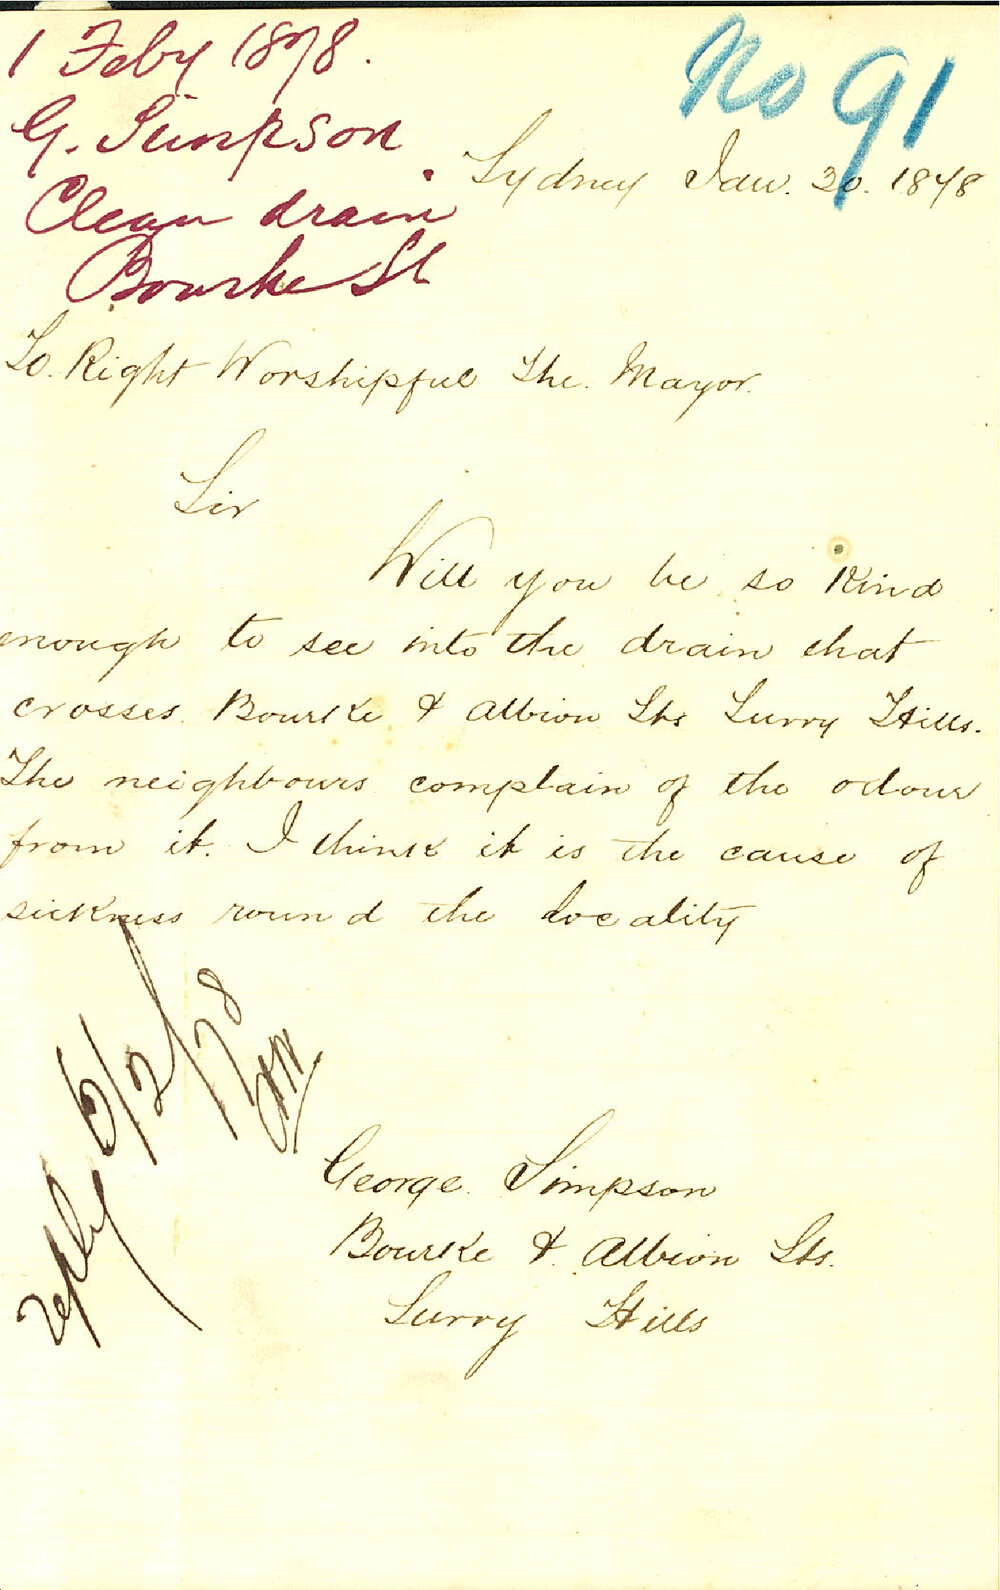 1 Feby 1878.
G. Simpson
Clean drain
Bourke St
No 91
Sydney Jan. 30. 1878
To. Right Worshipful The. Mayor.
Sir
Will you be so kind
enough to see into the drain that
crosses Bourke & Albion Sts Surry Hills.
The neighbours complain of the odour
from it. I think it is the cause of
sickness round the locality
reply 6/2/78
George Simpson
Bourke & Albion Sts.
Surry Hills